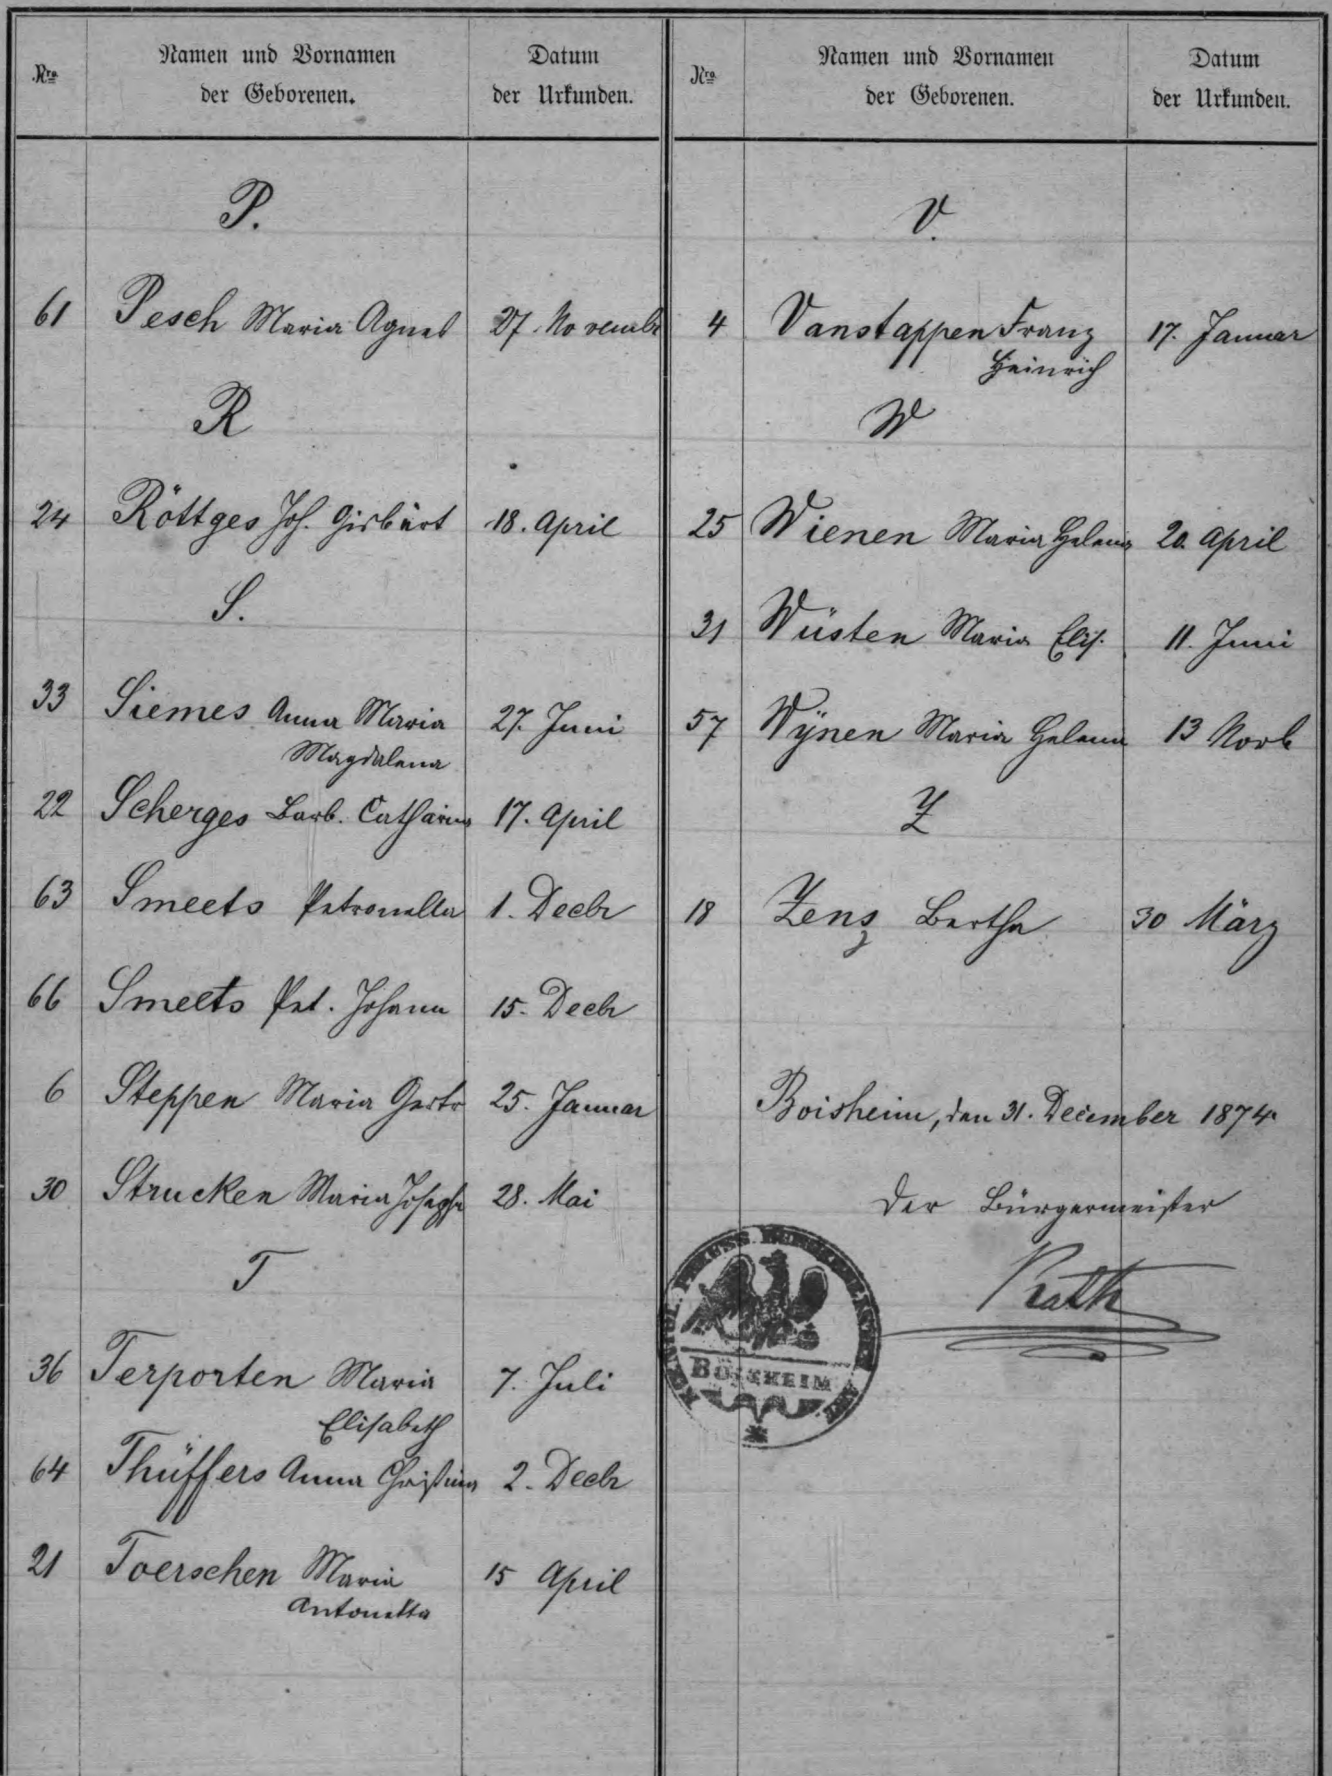 Nro
Namen und Vornamen
der Geborenen.
Datum
der Urkunden.
P.
61 Pesch Maria Agnes 27. November
R
24 Röttges Joh. Girbert 18. April
S.
33 Siemes Anna Maria 27. Juni
Magdalena
22 Scherges Barb. Catharina 17. April
63 Smeets Petronella 1. Decbr
66 Smeets Pet. Johann 15. Decbr
6 Steppen Maria Gertr 25. Januar
30 Strucken Maria Josepha 28. Mai
T
36 Terporten Maria 7. Juli
Elisabeth
64 Thüffers Anna Christina 2. Decbr
21 Toerschen Maria 15 April
Antonetta
Nro
Namen und Vornamen
der Geborenen.
Datum
der Urkunden.
V.
4 Vanstappen Franz 17. Januar
Heinrich
W
25 Wienen Maria Helena 20. April
31 Wüsten Maria Elis. 11. Juni
57 Wÿnen Maria Helena 13 Novb
Z
18 Zens Bertha 30 März
Boisheim, den 31. December 1874
Der Bürgermeister
Rath
BOISHEIM